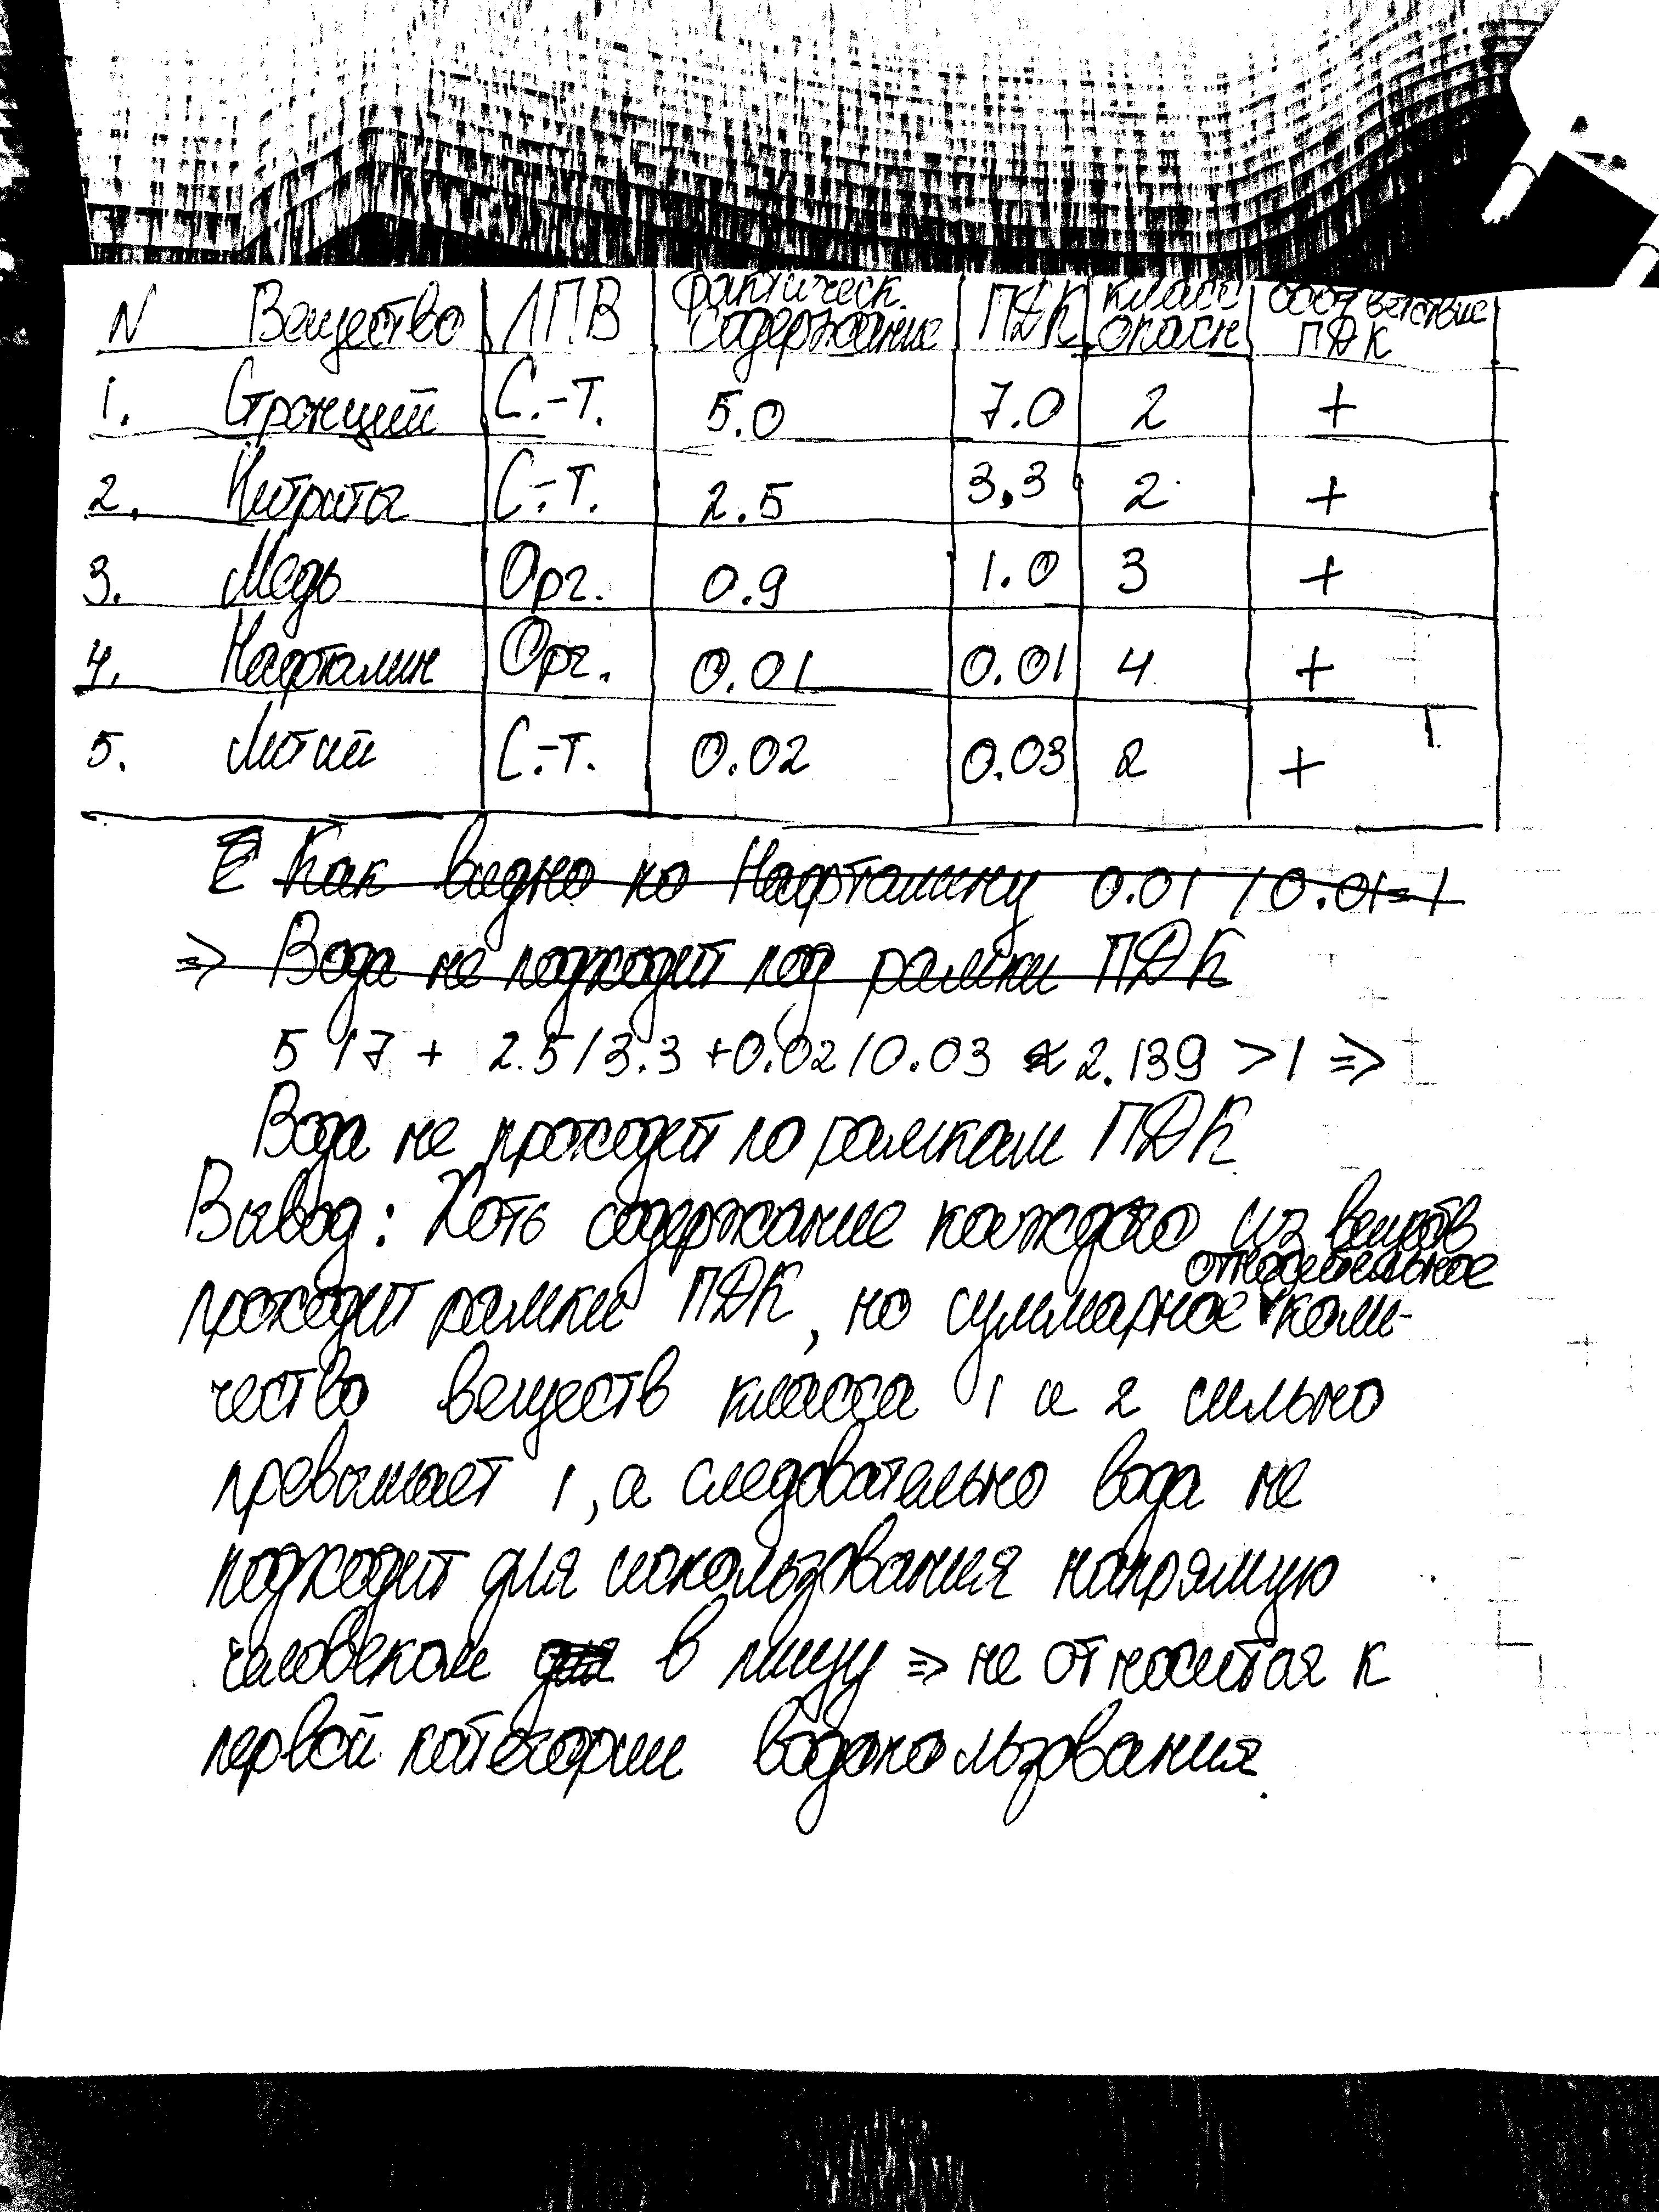 N Вещество ЛПВ Фактическ. содержание ПДК класс опасн соответствие ПДК
1. Стронций С.-Т. 5.0 7.0 2 +
2. Нитраты С.-Т. 2.5 3,3 2 +
3. Медь Орг. 0.9 1.0 3 +
4. Нафталин Орг. 0.01 0.01 4 +
5. Литий С.-Т. 0.02 0.03 2 +
Как видно по Нафталину 0.01 / 0.01=1
=> Вода не подходит под рамки ПДК
5 / 7 + 2.5 / 3.3 + 0.02 / 0.03 ≈ 2.139 > 1 =>
Вода не проходит по рамкам ПДК
Вывод: Хоть содержание каждого из веществ
относительное
проходит рамки ПДК, но суммарное коли-
чество веществ класса 1 и 2 сильно
превышает 1, а следовательно вода не
подходит для использования напрямую
человеком в пищу => не относится к
первой категории водопользования.